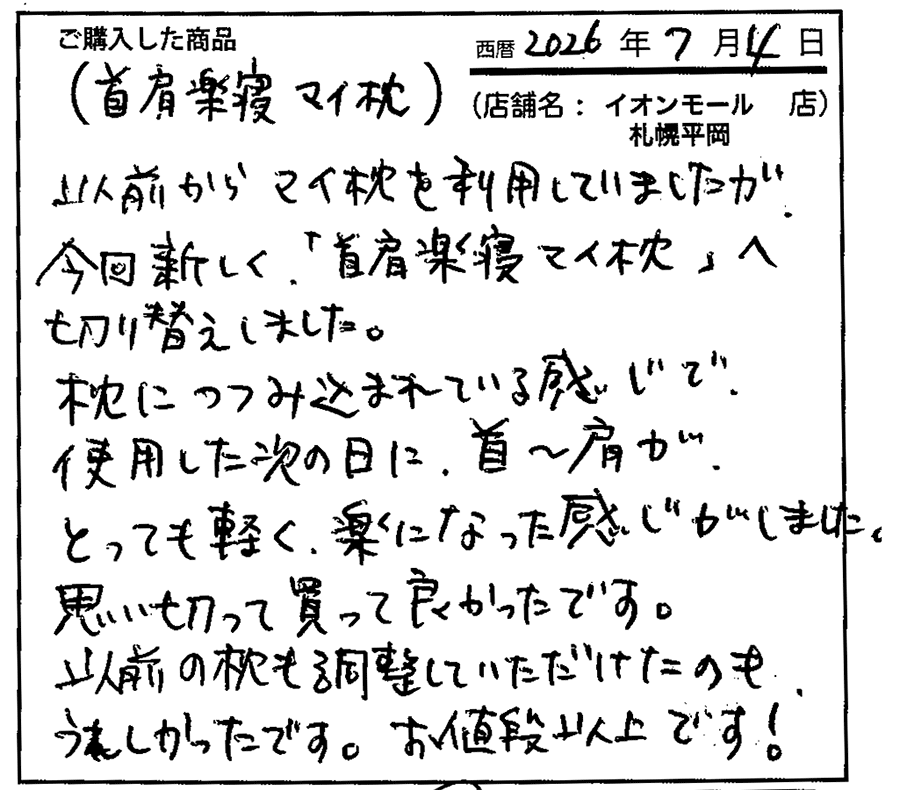 ご購入した商品
西暦 2026 年 7 月 4 日
(首肩楽寝マイ枕)
(店舗名： イオンモール 店)
札幌平岡
以前からマイ枕を利用していましたが、
今回新しく、「首肩楽寝マイ枕」へ
切り替えしました。
枕につつみ込まれている感じで、
使用した次の日に、首〜肩が、
とっても軽く、楽になった感じがしました。
思い切って買って良かったです。
以前の枕も調整していただけたのも、
うれしかったです。お値段以上です!